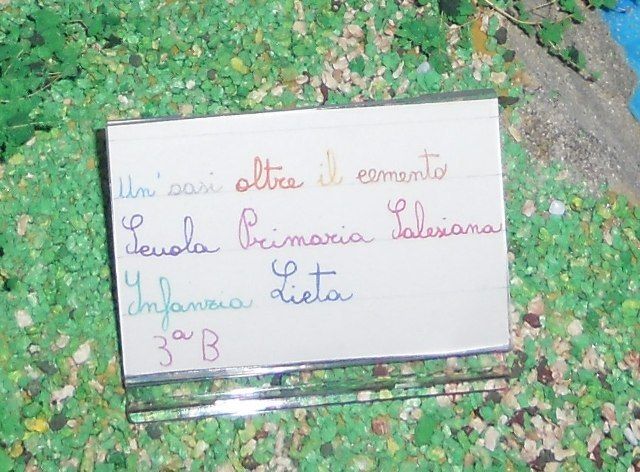 Un'oasi oltre il cemento
Scuola Primaria Salesiana
Infanzia Lieta
3ª B